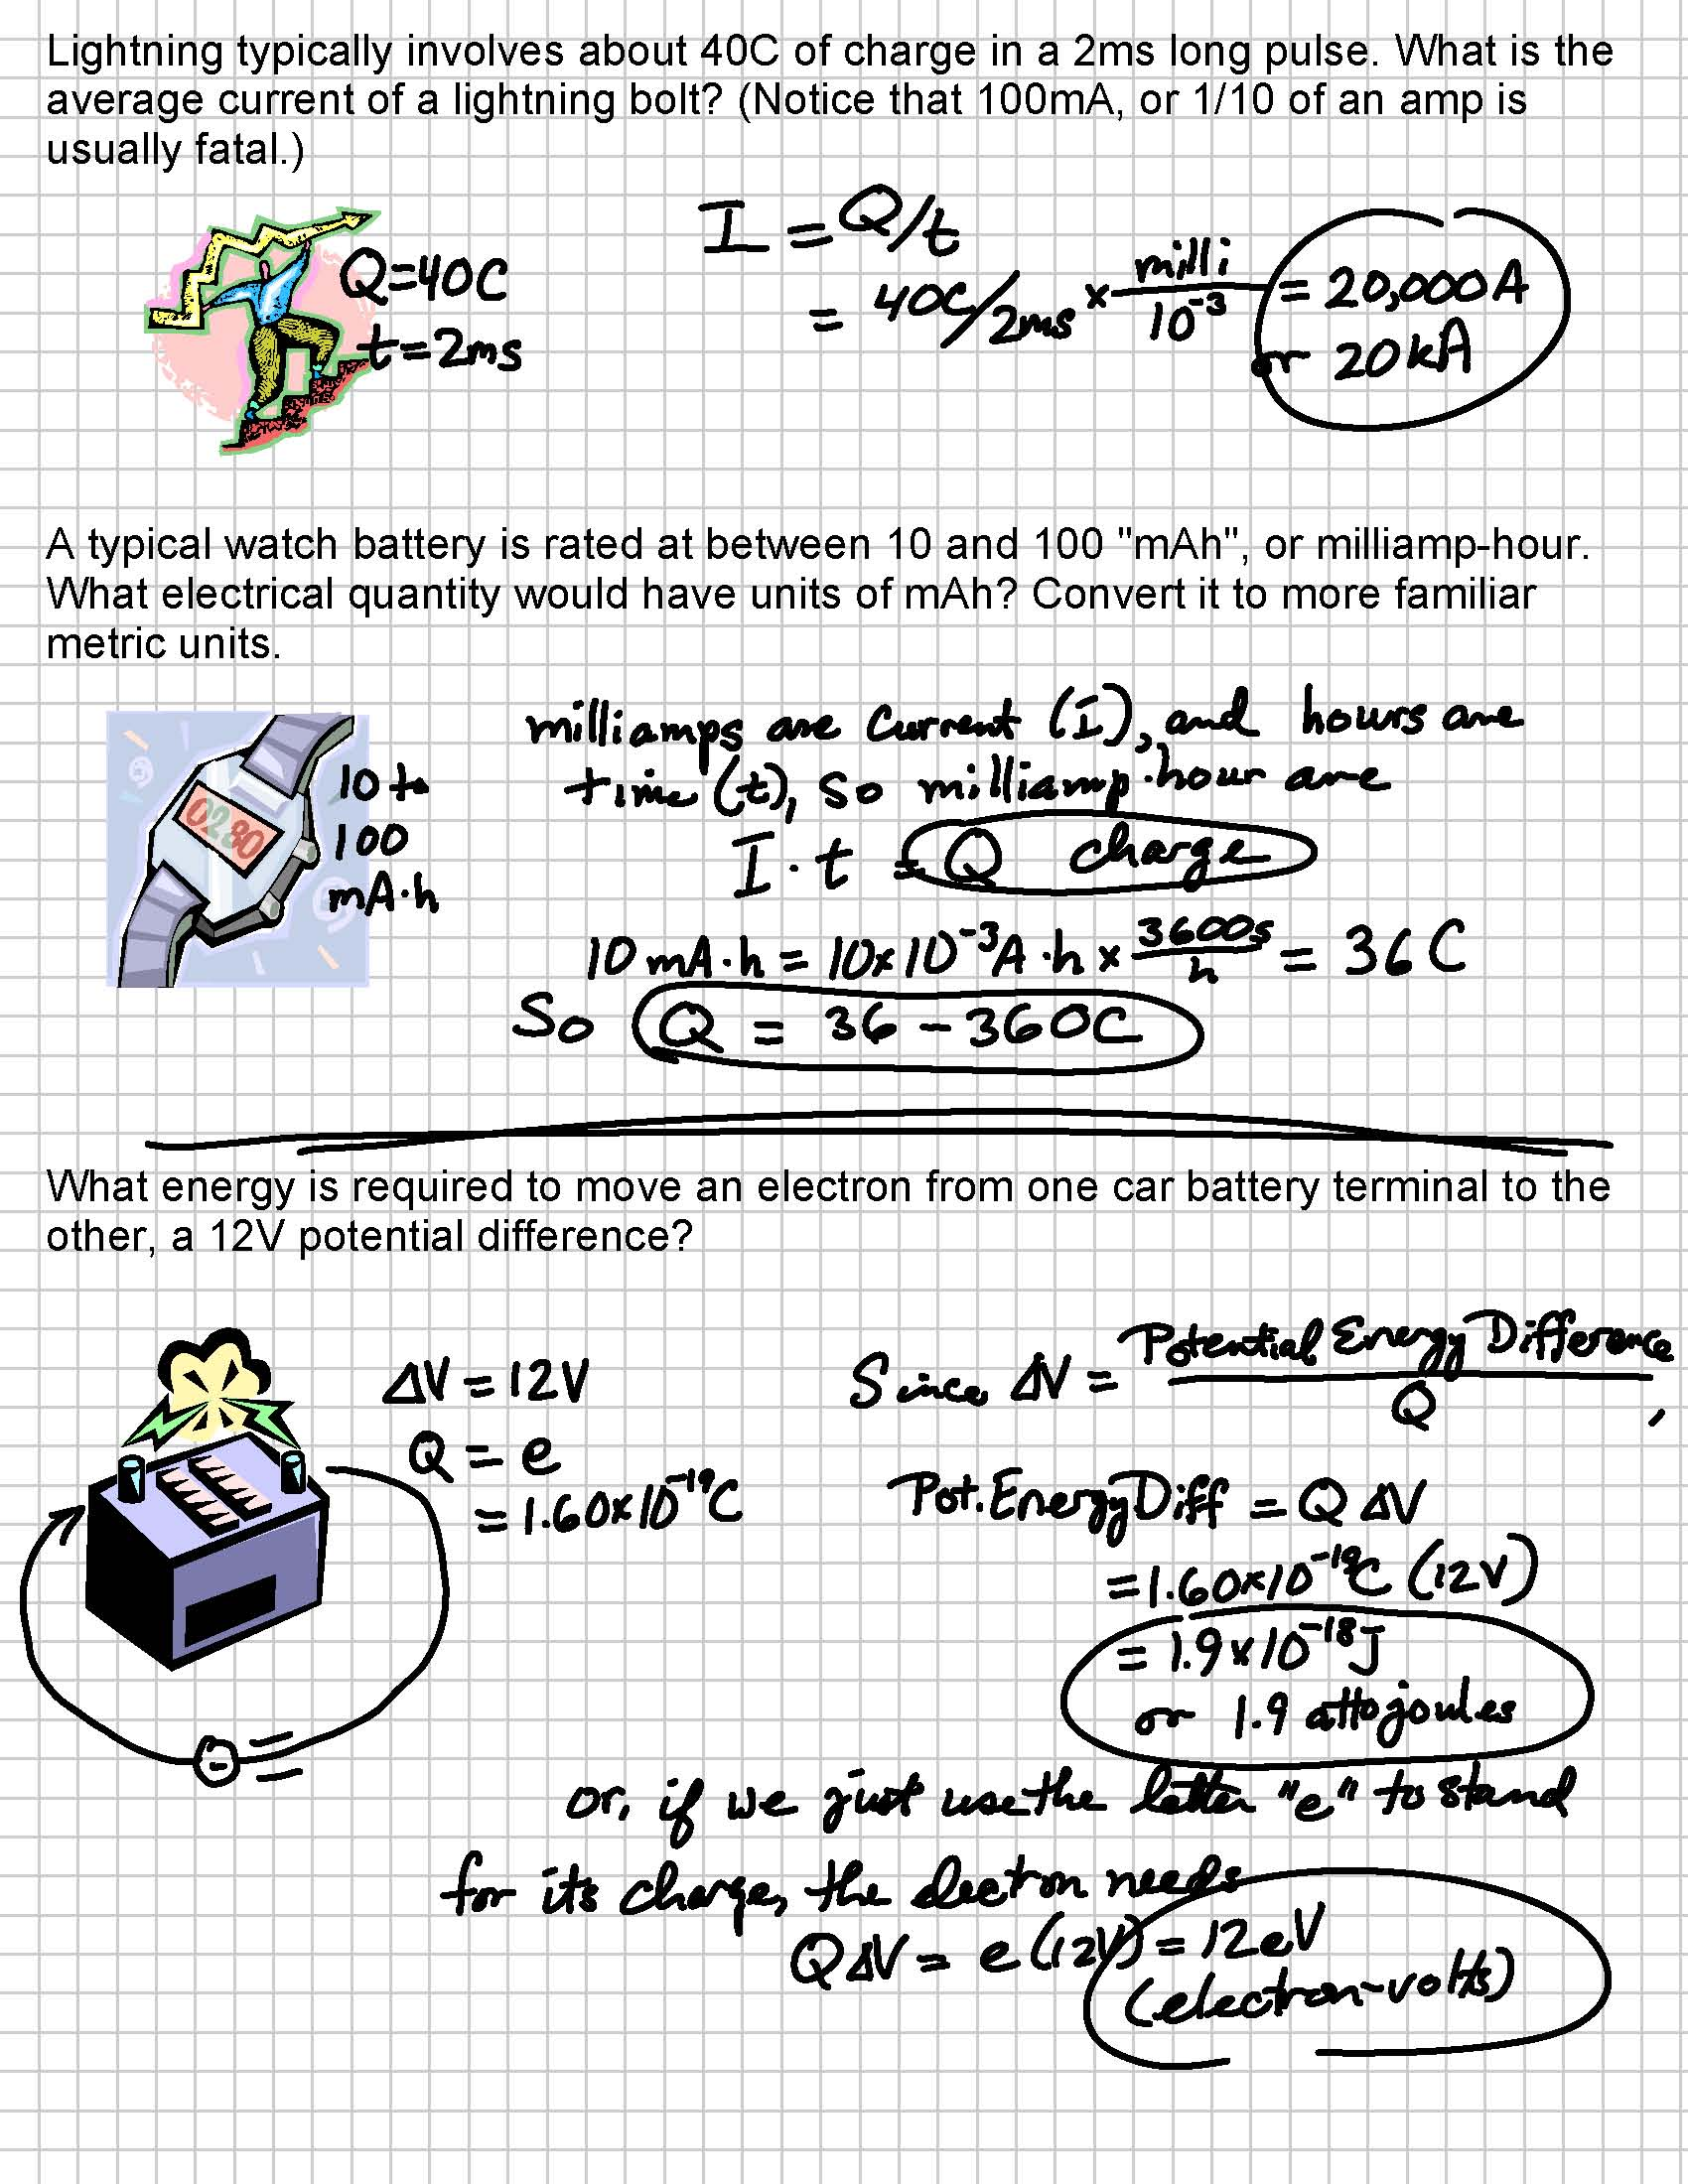 Lightning typically involves about 40C of charge in a 2ms long pulse. What is the
average current of a lightning bolt? (Notice that 100mA, or 1/10 of an amp is
usually fatal.)
I = Q/t
Q=40C
t=2ms
= 40C/2ms × milli/10⁻³ = 20,000A
or 20kA
A typical watch battery is rated at between 10 and 100 "mAh", or milliamp-hour.
What electrical quantity would have units of mAh? Convert it to more familiar
metric units.
0280
10 to
100
mA·h
milliamps are current (I), and hours are
time (t), so milliamp·hour are
I·t = Q charge
10mA·h = 10×10⁻³A·h × 3600s/h = 36C
So Q = 36 – 360C
What energy is required to move an electron from one car battery terminal to the
other, a 12V potential difference?
ΔV = 12V
Q = e
= 1.60×10⁻¹⁹C
Since ΔV = Potential Energy Difference/Q,
Pot. Energy Diff = QΔV
= 1.60×10⁻¹⁹C (12V)
= 1.9×10⁻¹⁸J
or 1.9 attojoules
-
or, if we just use the letter "e" to stand
for its charge, the electron needs
QΔV = e(12V) = 12eV
(electron-volts)